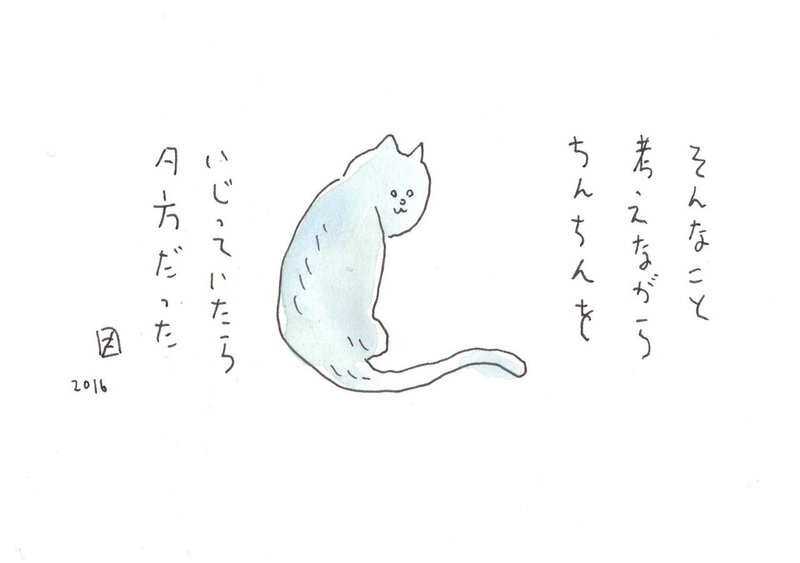 そんなこと
考えながら
ちんちんを
いじっていたら
夕方だった
2016